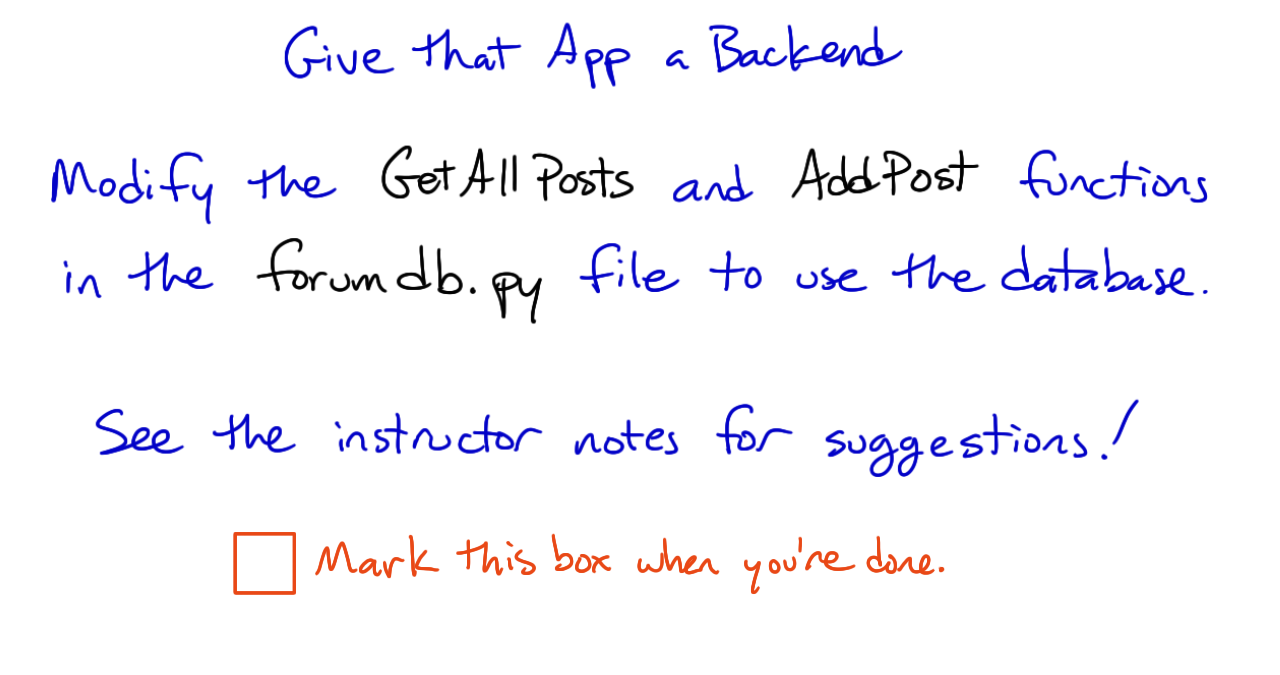 Give that App a Backend
Modify the GetAllPosts and AddPost functions
in the forumdb.py file to use the database.
See the instructor notes for suggestions!
Mark this box when you're done.